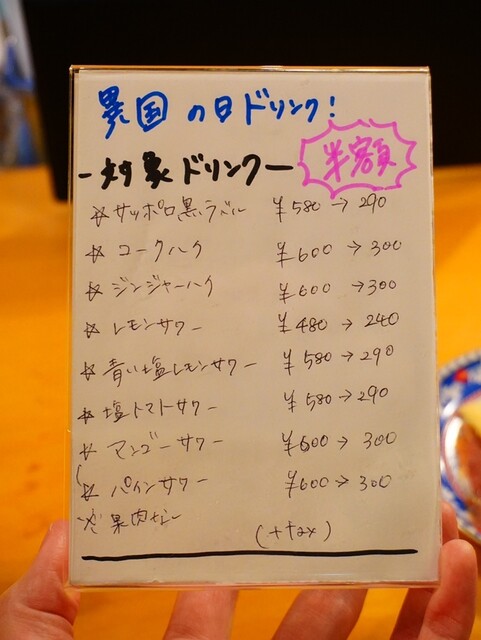 異国の日ドリンク!
半額
-対象ドリンク-
☆サッポロ黒ラベル ¥580→290
☆コークハイ ¥600→300
☆ジンジャーハイ ¥600→300
☆レモンサワー ¥480→240
☆青い塩レモンサワー ¥580→290
☆塩トマトサワー ¥580→290
☆マンゴーサワー ¥600→300
☆パインサワー ¥600→300
※果肉なし
(+tax)